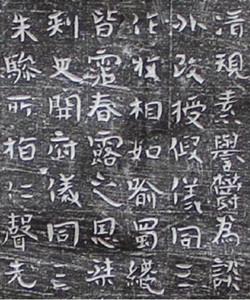 清規素譽欝為談
外改授假儀同三
作牧相如喻蜀纔
皆霑春露之恩
刺史開府儀同三
朱驂所指仁聲先